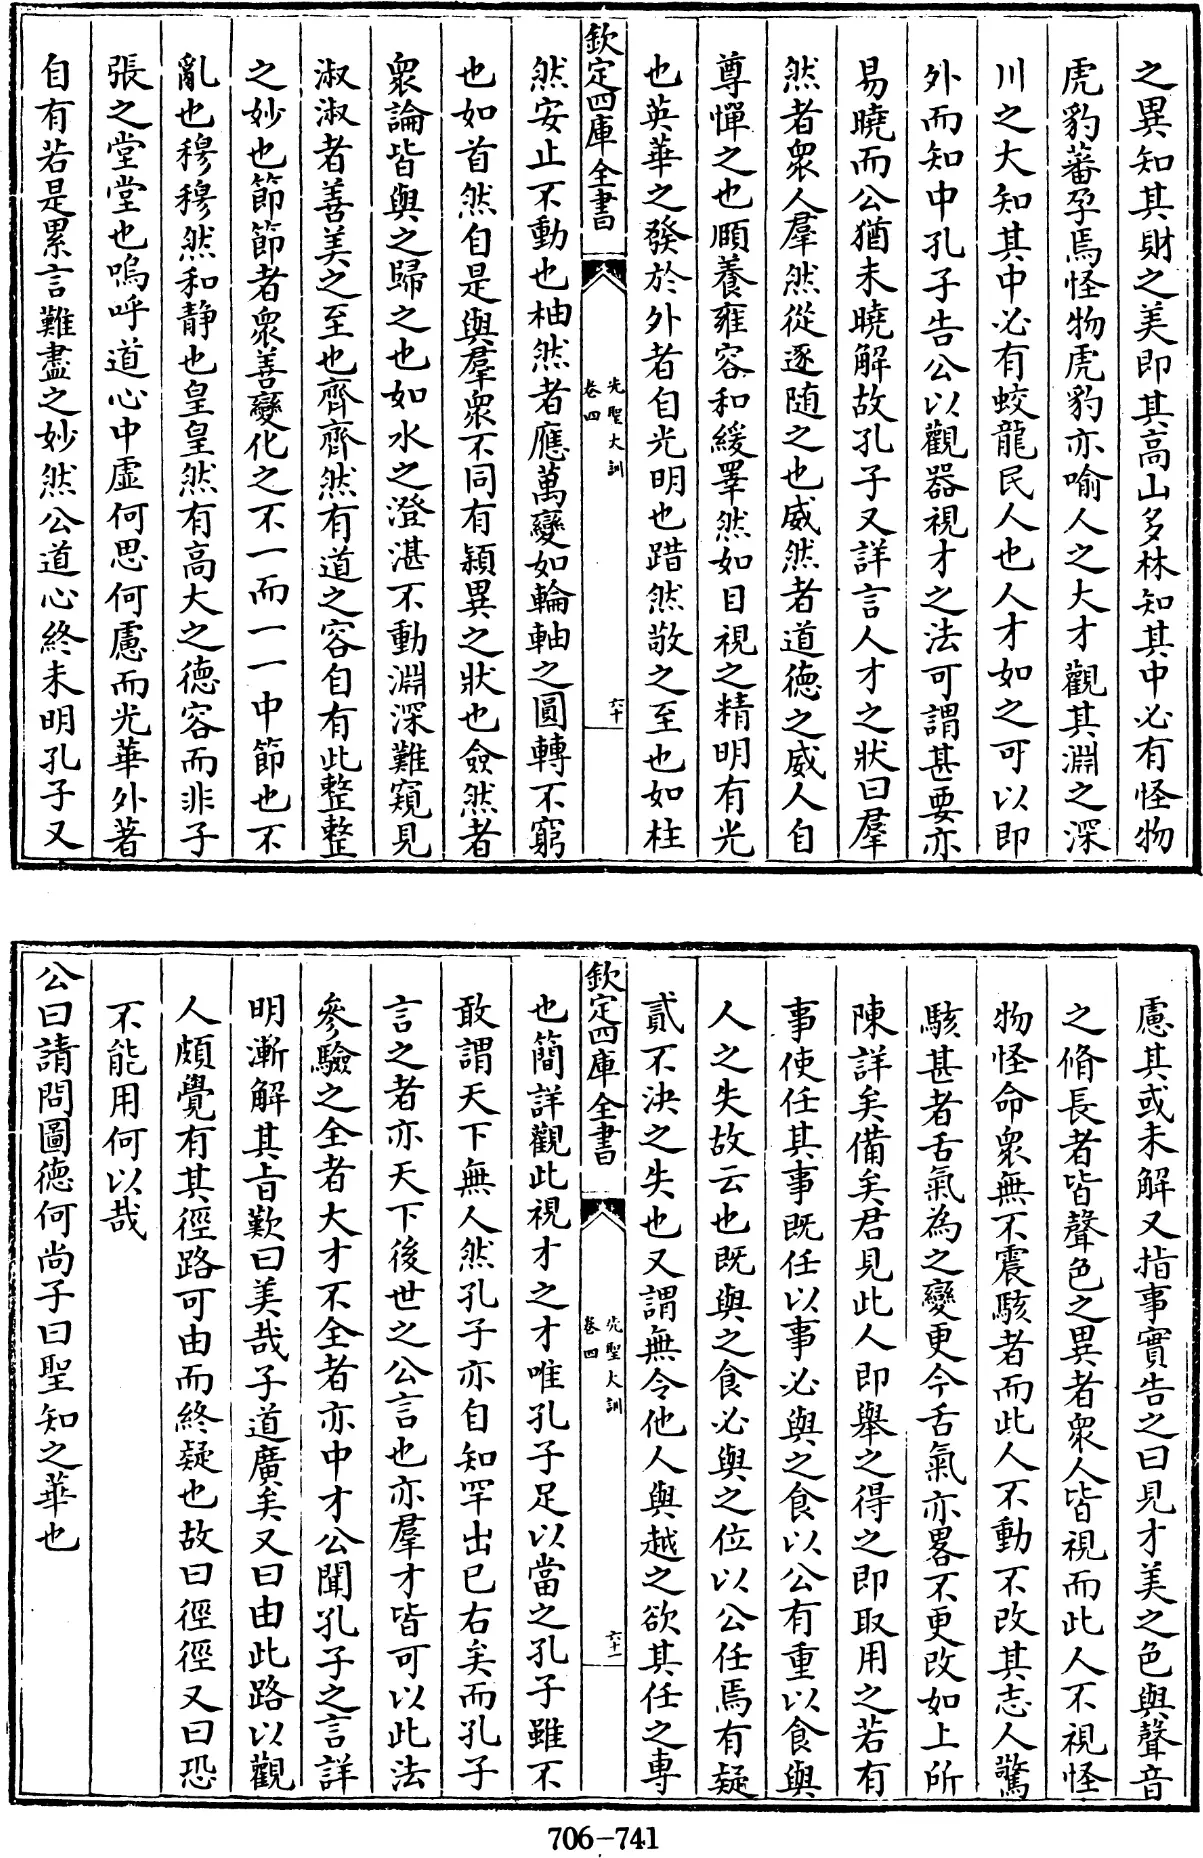 之異知其財之美即其高山多林知其中必有怪物
虎豹蕃孕焉怪物虎豹亦喻人之大才觀其淵之深
川之大知其中必有蛟龍民人也人才如之可以即
外而知中孔子告公以觀器視才之法可謂甚要亦
易曉而公猶未曉解故孔子又詳言人才之狀曰羣
然者衆人羣然從逐随之也威然者道德之威人自
尊憚之也頤養雍容和緩睪然如目視之精明有光
也英華之發於外者自光明也踖然敬之至也如柱
欽定四庫全書
先聖大訓
卷四
六十
然安止不動也柚然者應萬變如輪軸之圓轉不窮
也如首然自是與羣衆不同有穎異之狀也僉然者
衆論皆與之歸之也如水之澄湛不動淵深難窺見
淑淑者善美之至也齊齊然有道之容自有此整整
之妙也節節者衆善變化之不一而一一中節也不
亂也穆穆然和静也皇皇然有高大之德容而非子
張之堂堂也嗚呼道心中虛何思何慮而光華外著
自有若是累言難盡之妙然公道心終未明孔子又
慮其或未解又指事實告之曰見才美之色與聲音
之脩長者皆聲色之異者衆人皆視而此人不視怪
物怪命衆無不震駭者而此人不動不改其志人驚
駭甚者舌氣為之變更今舌氣亦畧不更改如上所
陳詳矣備矣君見此人即舉之得之即取用之若有
事使任其事既任以事必與之食以公有重以食與
人之失故云也既與之食必與之位以公任焉有疑
貳不決之失也又謂無令他人與越之欲其任之專
欽定四庫全書
先聖大訓
卷四
六十一
也簡詳觀此視才之才唯孔子足以當之孔子雖不
敢謂天下無人然孔子亦自知罕出已右矣而孔子
言之者亦天下後世之公言也亦羣才皆可以此法
參驗之全者大才不全者亦中才公聞孔子之言詳
明漸解其旨歎曰美哉子道廣矣又曰由此路以觀
人頗覺有其徑路可由而終疑也故曰徑徑又曰恐
不能用何以哉
公曰請問圖德何尚子曰聖知之華也
706-741